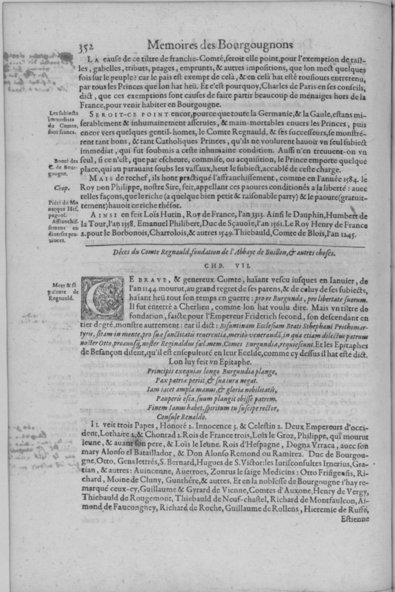 352
Memoires des Bourgougnons
LA cause de ce tiltre de franche-Comté, seroit elle point, pour l'exemption de tail-
les, gabelles, tributs, peages, emprunts, & autres impositions, que lon mect quelques
fois sur le peuple? car le pais est exempt de celà, & en celà hat esté tousiours entretenu,
par tous les Princes que lon hat heü. Et c'est pourquoy, Charles de Paris en ses conseils,
dict, que ces exemptions sont causes de faire partir beaucoup de ménages hors de la
France, pour venir habiter en Bourgougne.
SEROIT-CE POINT encor, pource que toute la Germanie, & la Gaule, estans mi-
serablement & inhumainement asseruies, & main-mortables enuers les Princes, puis
encor vers quelques gentil-homes, le Comte Regnauld, & ses successeurs, se monstré-
rent tant bons, & tant Catholiques Princes, qu'ils ne voulurent hauoir un seul subiect
immediat, qui fut soubmis a ceste inhumaine condition. Aussi n'en trouuent-on vn
seul, si cen'est, que par escheute, commise, ou acquisition, le Prince emporte quelque
place, qui au parauant soubs les vassaux, heut le subiect, accablé de ceste charge.
MAIS de rechef, ils hont practiqué l'affranchissement, comme en l'année 1584. le
Roy Don Philippe, nostre Sire, feit, appellant ces pauures conditionés a la liberté: auec
telles façons, que le riche (a quelque bien petit & raisonable party) & le pauure (gratuite-
tement) hauoit ce riche thresor.
AINSI en feit Loïs Hutin, Roy de France, l'an 1315. Ainsi le Dauphin, Humbert de
la Tour, l'an Emanuel Philibert, Duc de Sçauoie, l'an 1561. Le Roy Henry de France
2. pour le Borbonois, Charrolois, & autres 1549. Thiebauld, Comte de Blois, l'an 1245.
Les subiects
du Comté
sont francs.
Bonté des
C. de Bour-
gougne.
Chop.
Affranchis-
sement en
diuerses pro-
uinces.
Déces du Comte Regnauld, fondation de l'Abbaye de Buillon, & autres choses.
CHP. VII.
Mort & se-
pulture de
Regnauld.
CE BRAVE, & genereux Comte, haïant vescu iusques en Ianuier, de
l'an 1144. mourut, au grand regret de ses parens, & de celuy de ses subiects,
haïant heü tout son temps en guerre: pro re Burgunda, pro libertate suorum.
Il fut enterré a Cherlieu, comme lon hat voulu dire. Mais vn tiltre de
fondation, faicte pour l'Empereur Friderich second, son descendant en
tier degré, monstre autrement: car il dict: Ecclesiam Beati Stephani Prothomar-
tyris,
noster Otto, proauus que noster Reginaldus fœl. mem. Comes Burgundiæ, requiescunt. Et les Epitaphes
de Besançon disent, qu'il est ensepulturé en leur Ecclise, comme cy dessus il hat esté dict.
Lon luy feit vn Epitaphe.
Principis exequias longo Burgundia plange,
Pax patræ periit, & sua iura negat.
Iam iacet ampla manus, & gloria nobilitatis,
Pauperis esca. suum plangit obisse patrem.
Finem Ianus habet, spiritum tu suscipe rector,
Consule Renaldo.
IL veit trois Papes, Honoré 2. Innocence 3. & Celestin 2. Deux Empereurs d'occi-
dent, Lothaire 2. & Chonrad 2. Rois de France trois, Loïs le Groz, Philippe, qui mourut
ieune, & auant son pere, & Loïs le Ieune. Rois d'Hespagne, Dogna Vrraca, auec son
mary Alonso el Batallador, & Don Alonso Remond ou Ramirez. Duc de Bourgou-
gne, Otto, Gens lettrés, S. Bernard, Hugues de S. Victor: les Iurisconsultes Irnerius, Gra-
tian, & autres: Auincenne, Auerroes, Zonras le saige Medicins: Otto Frisigensis, Ri-
chard, Moine de Cluny, Gunthére, & autres. Et en la noblesse de Bourgougne s'hay re-
marqué ceux-cy, Guillaume & Gyrard de Vienne, Comtes d'Auxone, Henry de Vergy,
Thiebauld de Rougemont, Thiebauld de Neuf-chastel, Richard de Montfaulcon, Ai-
mond de Faucougney, Richard de Roche, Guillaume de Rollens, Hieremie de Ruffé,
Estienne